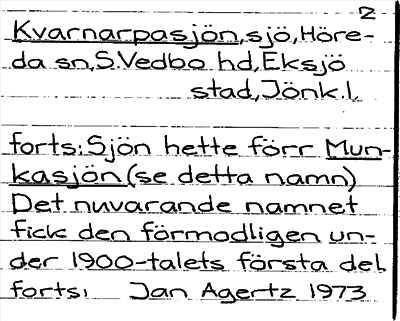 2
Kvarnarpasjön, sjö, Höre-
da sn, S.Vedbo hd, Eksjö
stad, Jönk.l.
forts: Sjön hette förr Mun-
kasjön (se detta namn)
Det nuvarande namnet
fick den förmodligen un-
der 1900-talets första del.
forts: Jan Agertz 1973